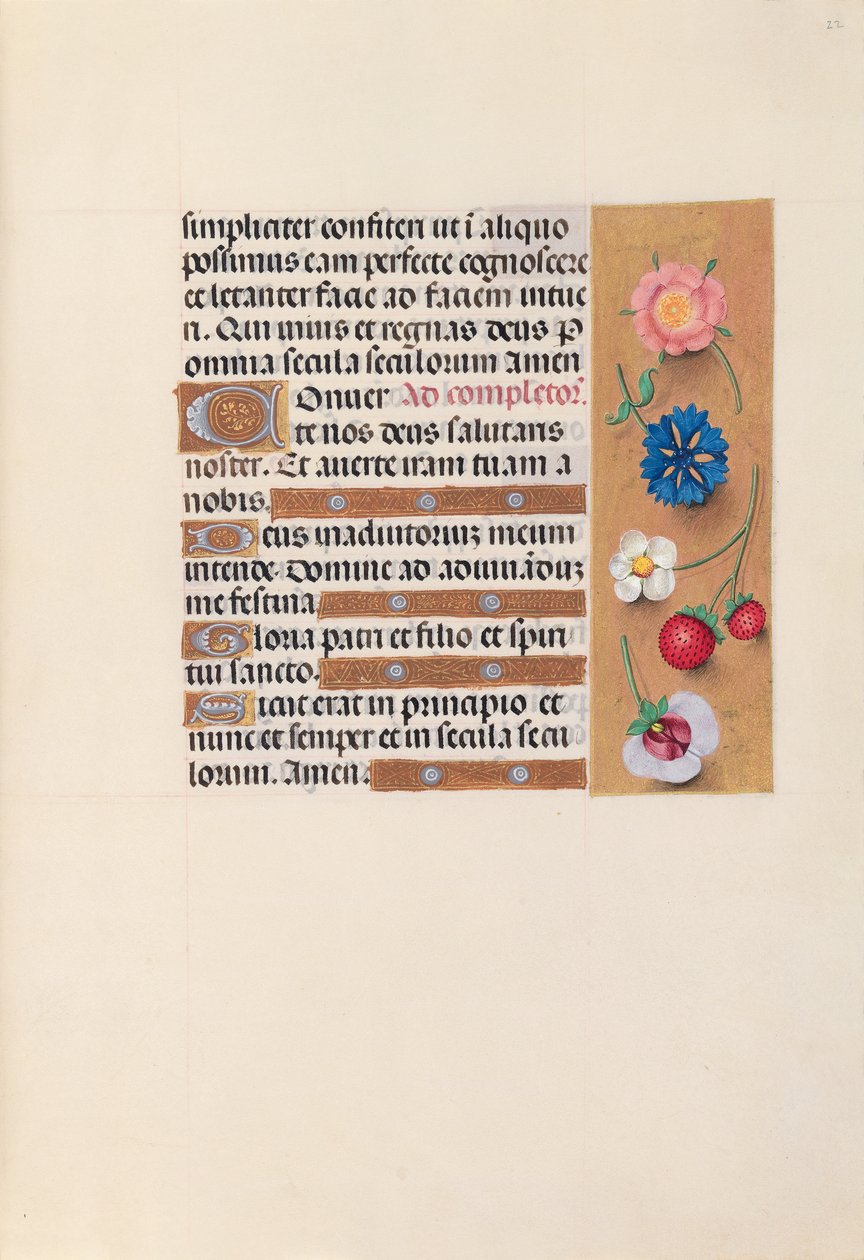 22
simpliciter confiteri ut ī aliquo
possimus eam perfecte cognoscere
et letanter facie ad faciem intue
ri. Qui viuis et regnas deus P̱
omnia secula seculorum Amen
Onuer Ad completor̄.
te nos deus salutaris
noster. Et auerte iram tuam a
nobis.
Deus in adiutoriuꝫ meum
intende. Domine ad adiuuāduꝫ
me festina.
Gloria patri et filio et spiri
tui sancto.
Sicut erat in principio et
nunc et semper et in secula secu
lorum. Amen.